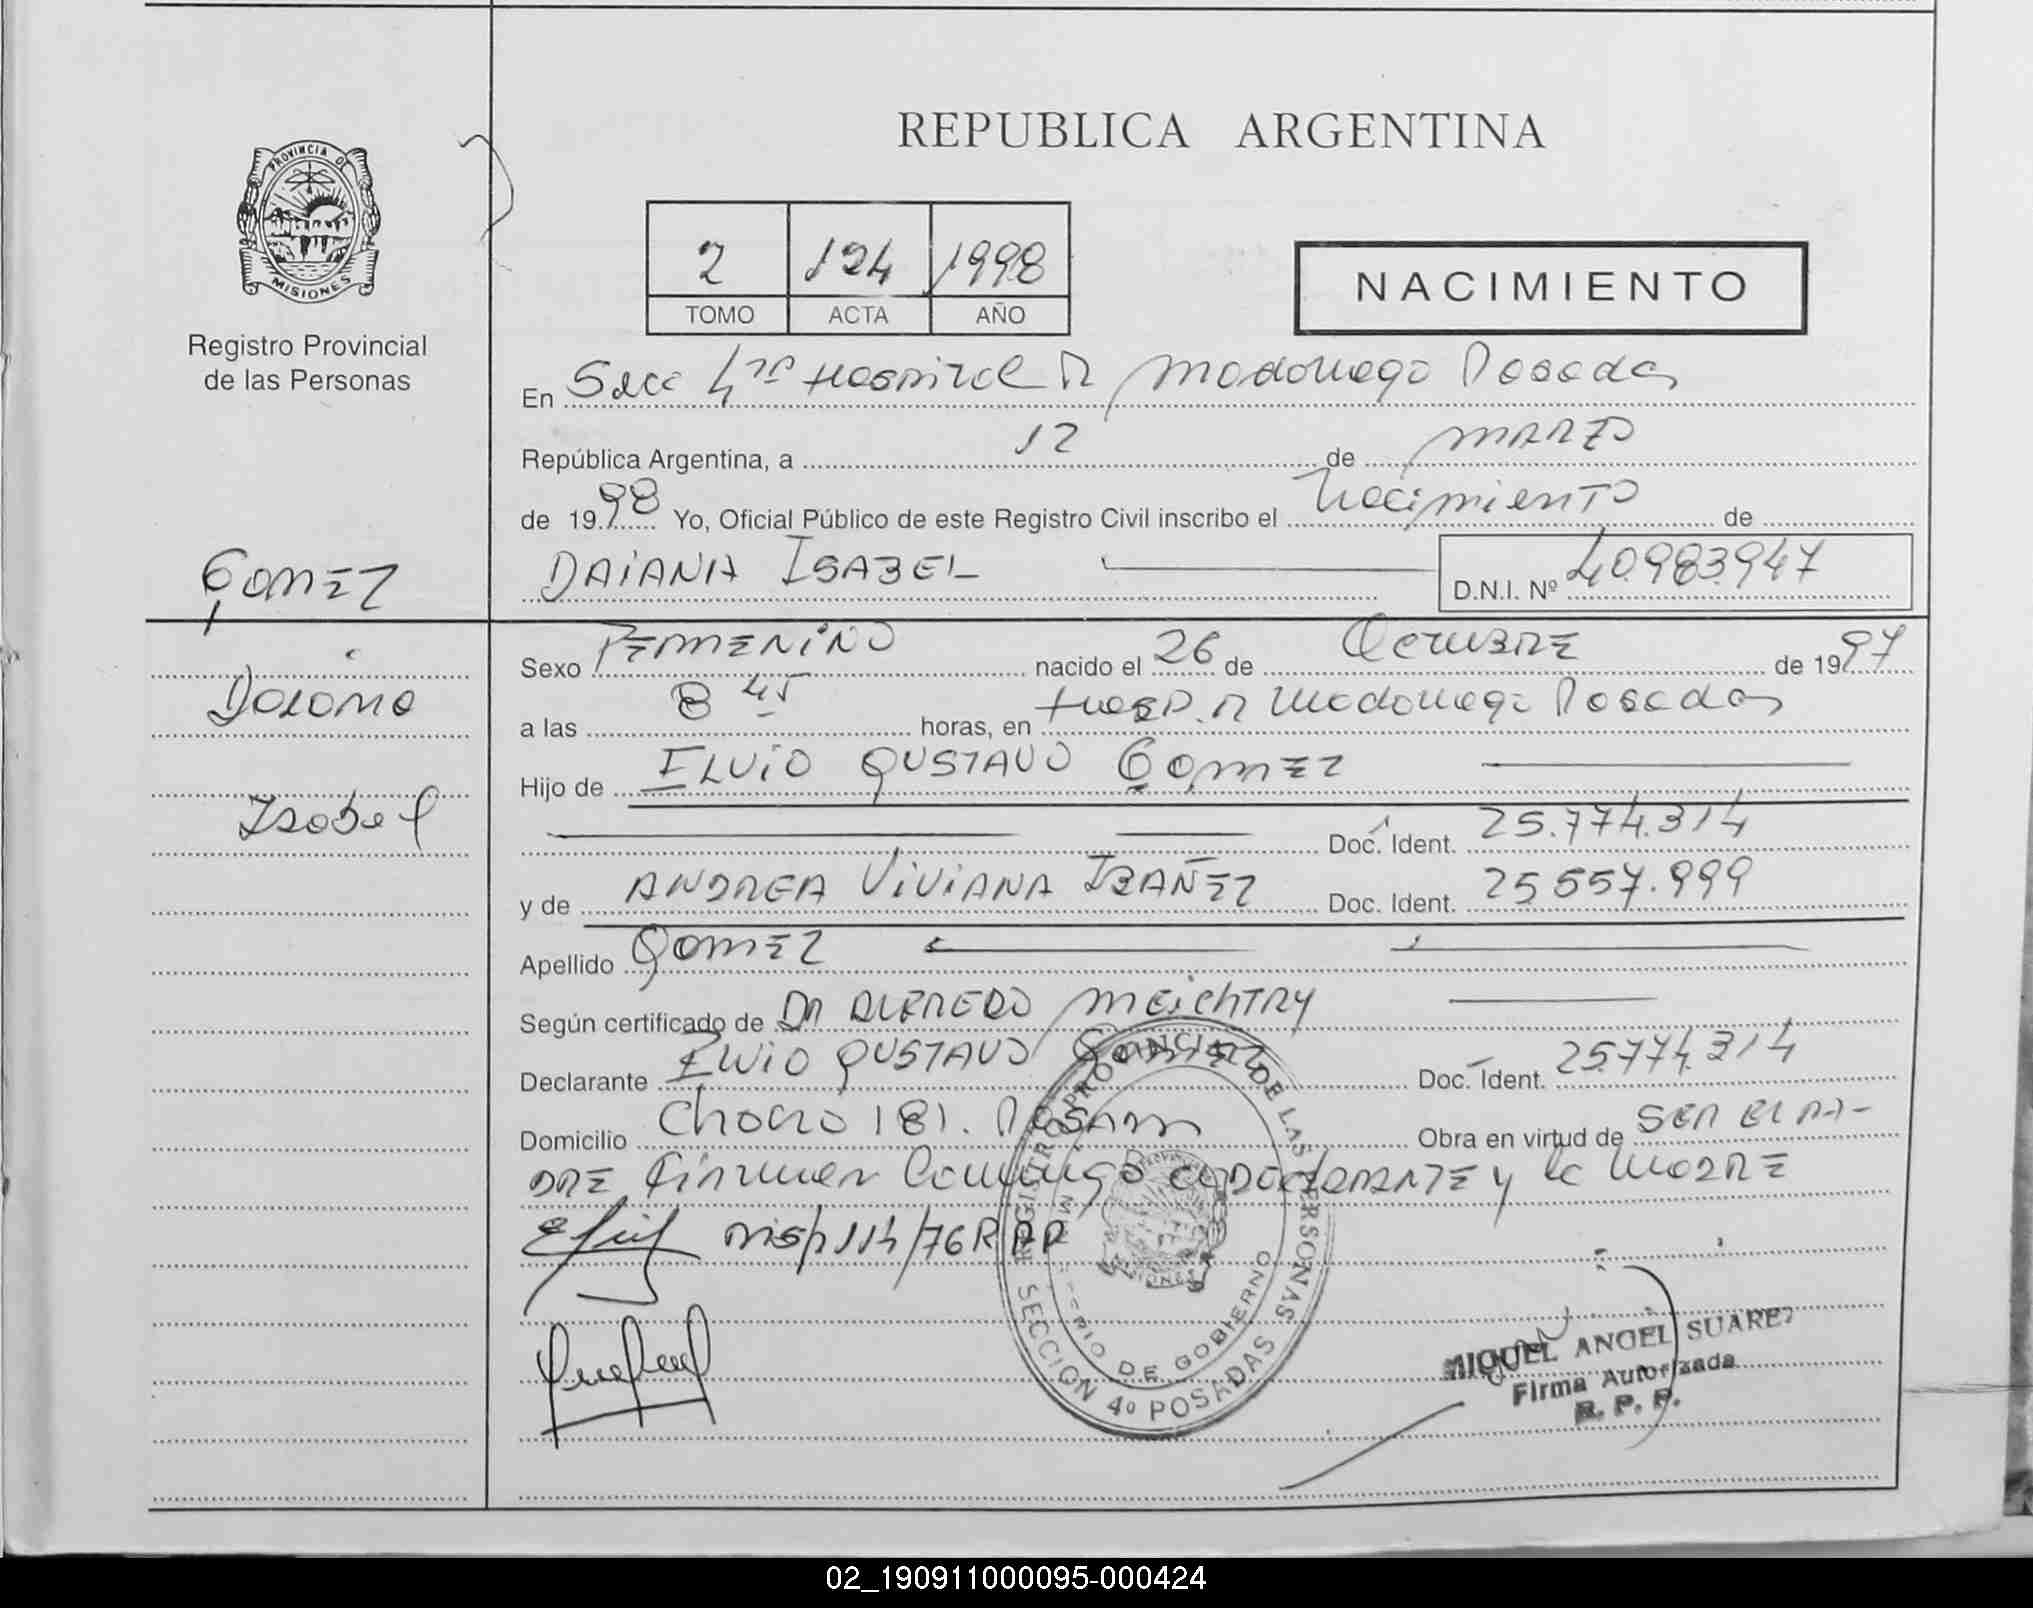 REPUBLICA ARGENTINA
PROVINCIA DE
MISIONES
Registro Provincial
de las Personas
2 124 1998
TOMO ACTA AÑO
NACIMIENTO
En Secc 4ta Hospital R Madariaga Posadas
República Argentina, a 12 de MARZO
de 1998 Yo, Oficial Público de este Registro Civil inscribo el Nacimiento de
GOMEZ
DAIANA ISABEL
D.N.I. Nº 40983947
Daiana
Isabel
Sexo FEMENINO nacido el 26 de OCTUBRE de 1997
a las 8 45 horas, en Hosp. R Madariaga Posadas
Hijo de ELVIO GUSTAVO GOMEZ
Doc. Ident. 25.774.314
y de ANDREA VIVIANA IBAÑEZ Doc. Ident. 25557.999
Apellido GOMEZ
Según certificado de DR ALFREDO MEICHTRY
Declarante ELVIO GUSTAVO GOMEZ Doc. Ident. 25774314
Domicilio 181. Obra en virtud de SER EL PA-
DRE Firman Conmigo el DECLARANTE y la MADRE
Disp 114/76 R PP
REGISTRO PROVINCIAL DE LAS PERSONAS
MINISTERIO DE GOBIERNO
SECCION 4º POSADAS
MIGUEL ANGEL SUAREZ
Firma Autorizada
R. P. P.
02_190911000095-000424